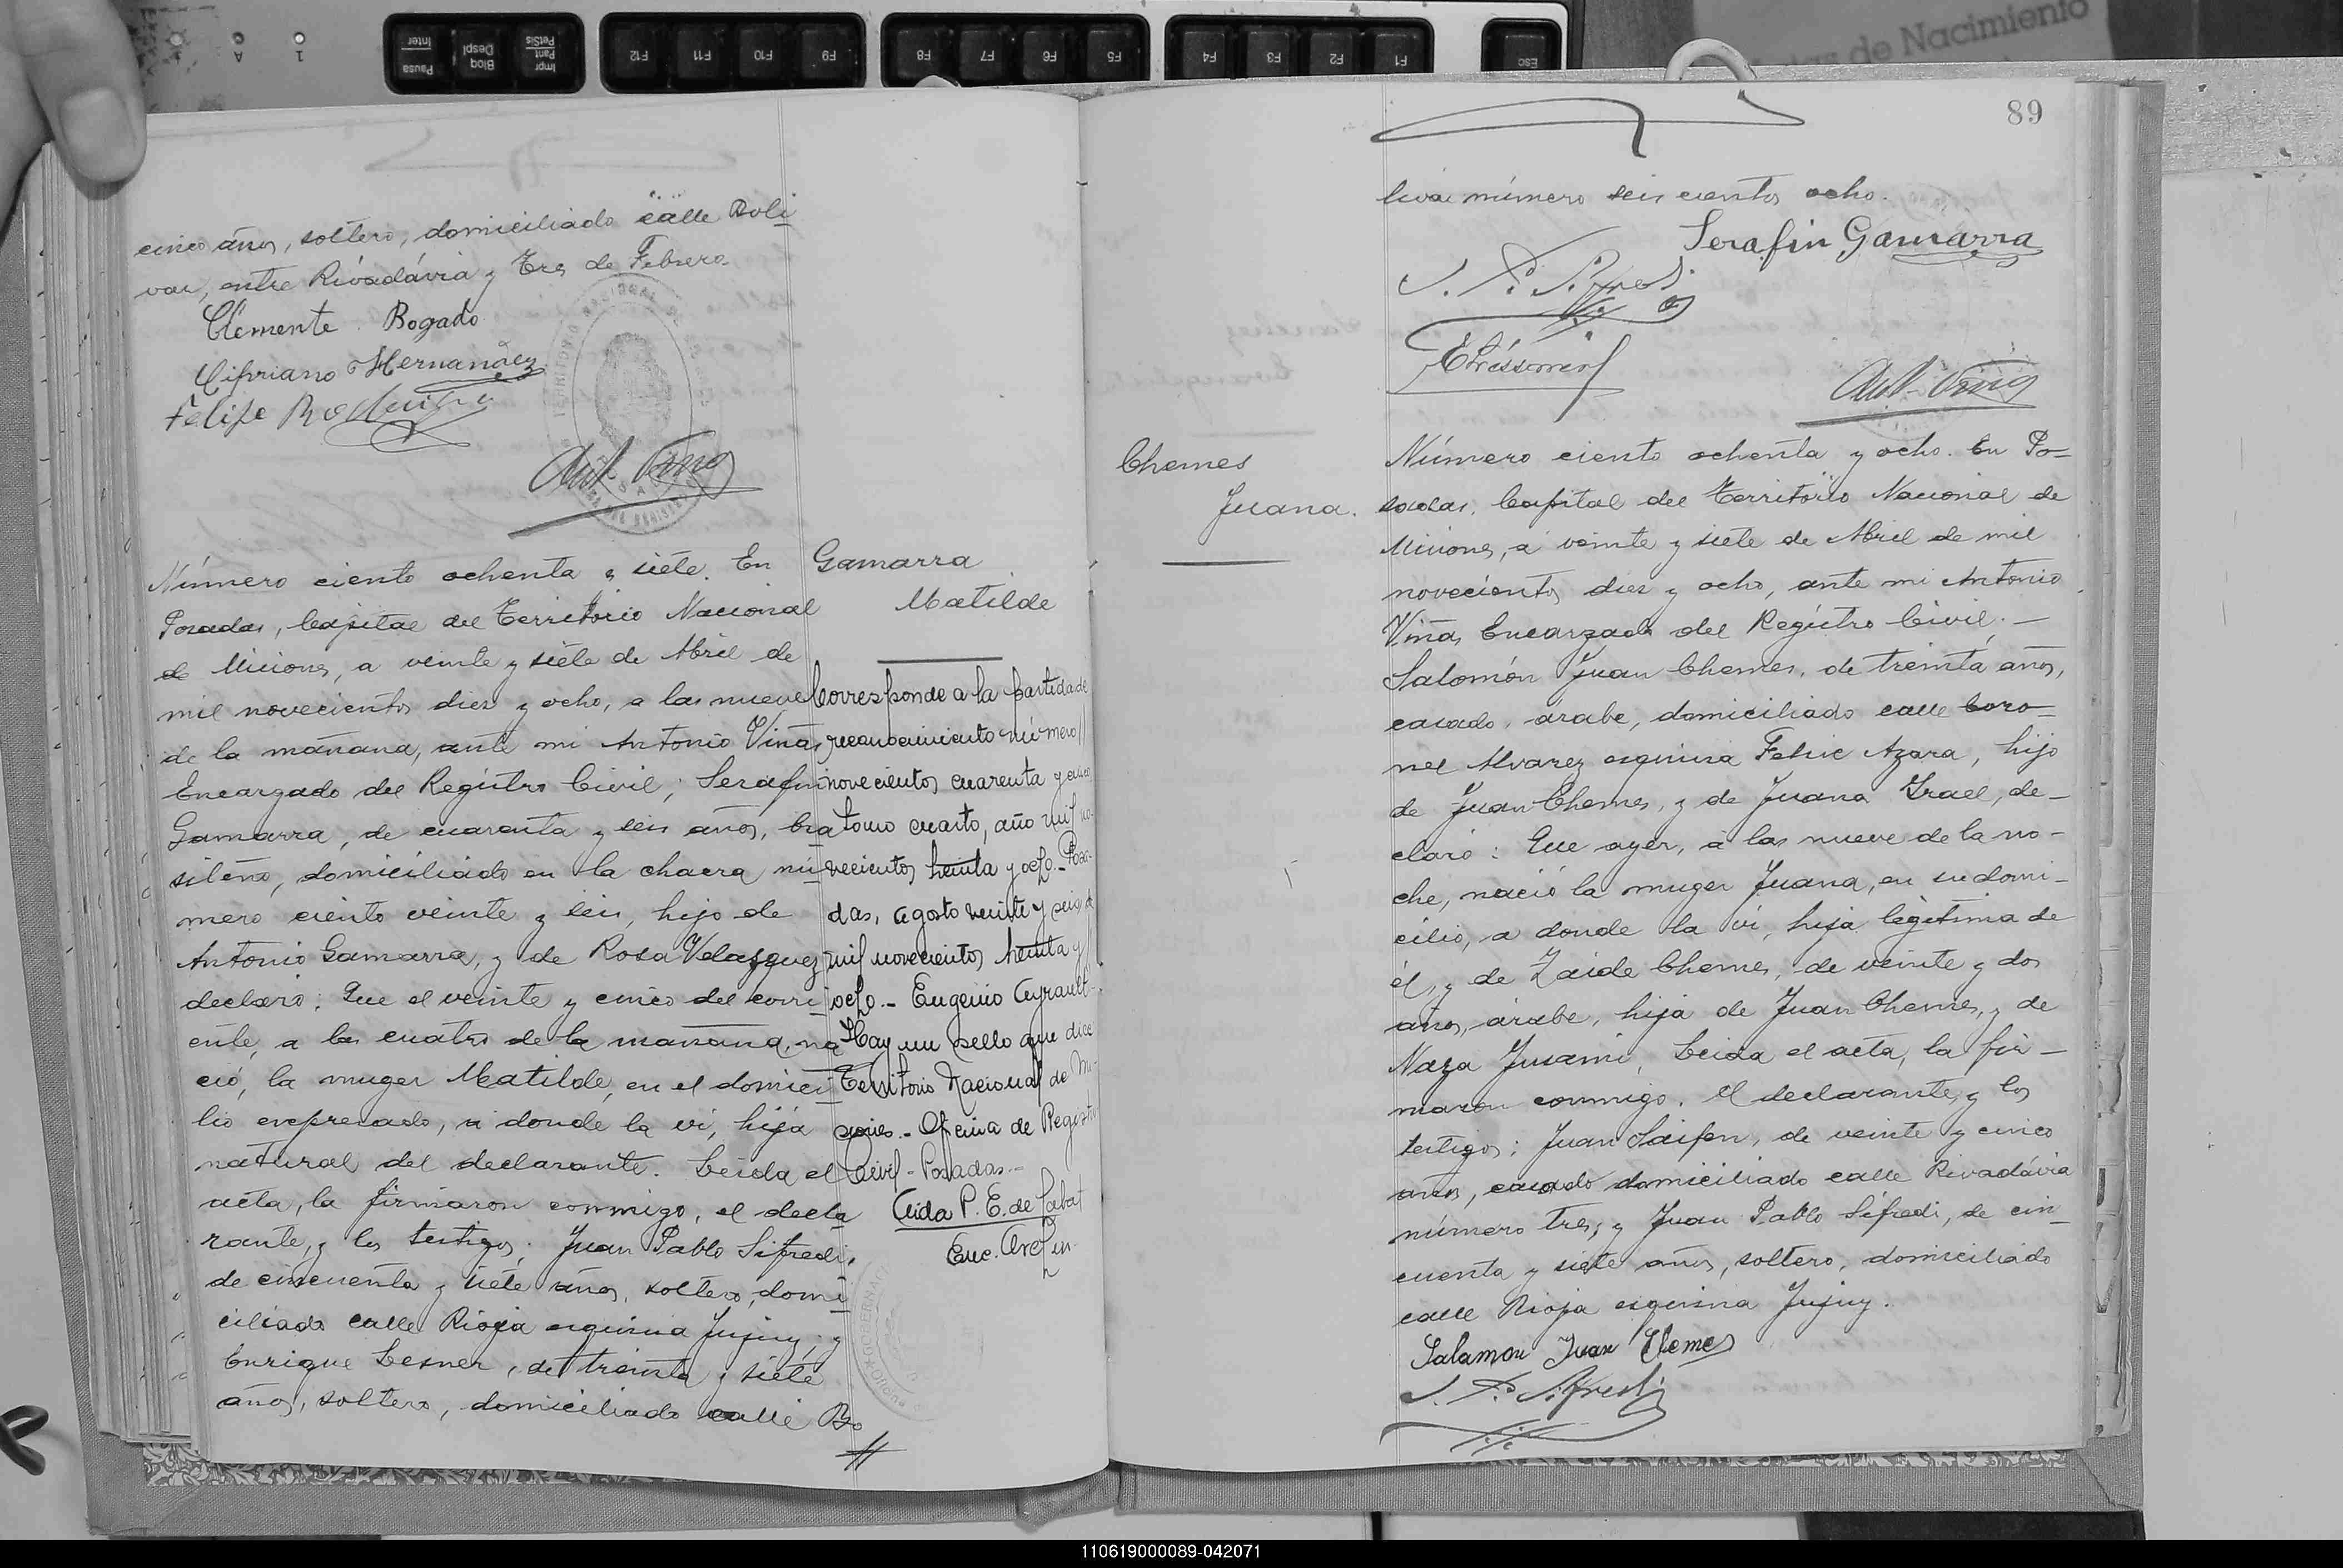 cinco años, soltero, domiciliado calle Boli
var, entre Rivadávia y Tres de Febrero.
Clemente Bogado
Cipriano Hernandez
Felipe
Ant. Viñas
Número ciento ochenta y siete. En
Posadas, Capital del Territorio Nacional
de Misiones, a veinte y siete de Abril de
mil novecientos diez y ocho, a las nueve
de la mañana, ante mi Antonio Viñas,
Encargado del Registro Civil; Serafin
Gamarra, de cuarenta y seis años, bra
sileño, domiciliado en la chacra nú
mero ciento veinte y seis, hijo de
Antonio Gamarra, y de Rosa Velazquez
declaró: Que el veinte y cinco del corri
ente, a las cuatro de la mañana, na
ció, la muger Matilde, en el domici
lio expresado, a donde la vi, hija
natural del declarante. Leida el
acta, la firmaron conmigo, el decla
rante, y los testigos: Juan Pablo Sifredi,
de cincuenta y siete años, soltero, domi
ciliado calle Rioja esquina Jujuy; y
Enrique Lesner, de treinta y siete
años, soltero, domiciliado calle Bo
Gamarra
Matilde
Corresponde a la partida de
reconocimiento número
novecientos cuarenta y cinco
tomo cuarto, año mil no-
vecientos treinta y ocho.- Posa-
das, Agosto veinte y seis de
mil novecientos treinta y
ocho.- Eugenio Ayrault-
Hay un sello que dice
Territorio Nacional de Mi-
siones.- Oficina de Registro
Civil - Posadas.-
Aida P. E. de Sabat
Enc. Arch
89
livar número seis cientos ocho.
Serafin Gamarra
J. P. Sifredi
Ant. Viñas
Chemes
Juana.
Número ciento ochenta y ocho. En Po=
sadas, Capital del Territorio Nacional de
Misiones, a veinte y siete de Abril de mil
novecientos diez y ocho, ante mi Antonio
Viñas, Encargado del Registro Civil; —
Salomón Juan Chemes, de treinta años,
casado, árabe, domiciliado calle Coro=
nel Alvarez esquina Felix Azara, hijo
de Juan Chemes, y de Juana Israel, de-
claró: Que ayer, a las nueve de la no-
che, nació la muger Juana, en su domi-
cilio, a donde la vi, hija legitima de
él, y de Zaide Chemes, de veinte y dos
años, árabe, hija de Juan Chemes, y de
Naza Jusami, Leida el acta, la fir-
maron conmigo, el declarante, y los
testigos: Juan Saifen, de veinte y cinco
años, casado domiciliado calle Rivadávia
número tres; y Juan Pablo Sifredi, de cin-
cuenta y siete años, soltero, domiciliado
calle Rioja esquina Jujuy.
Salamon Juan Chemes
J. P. Sifredi
110619000089-042071